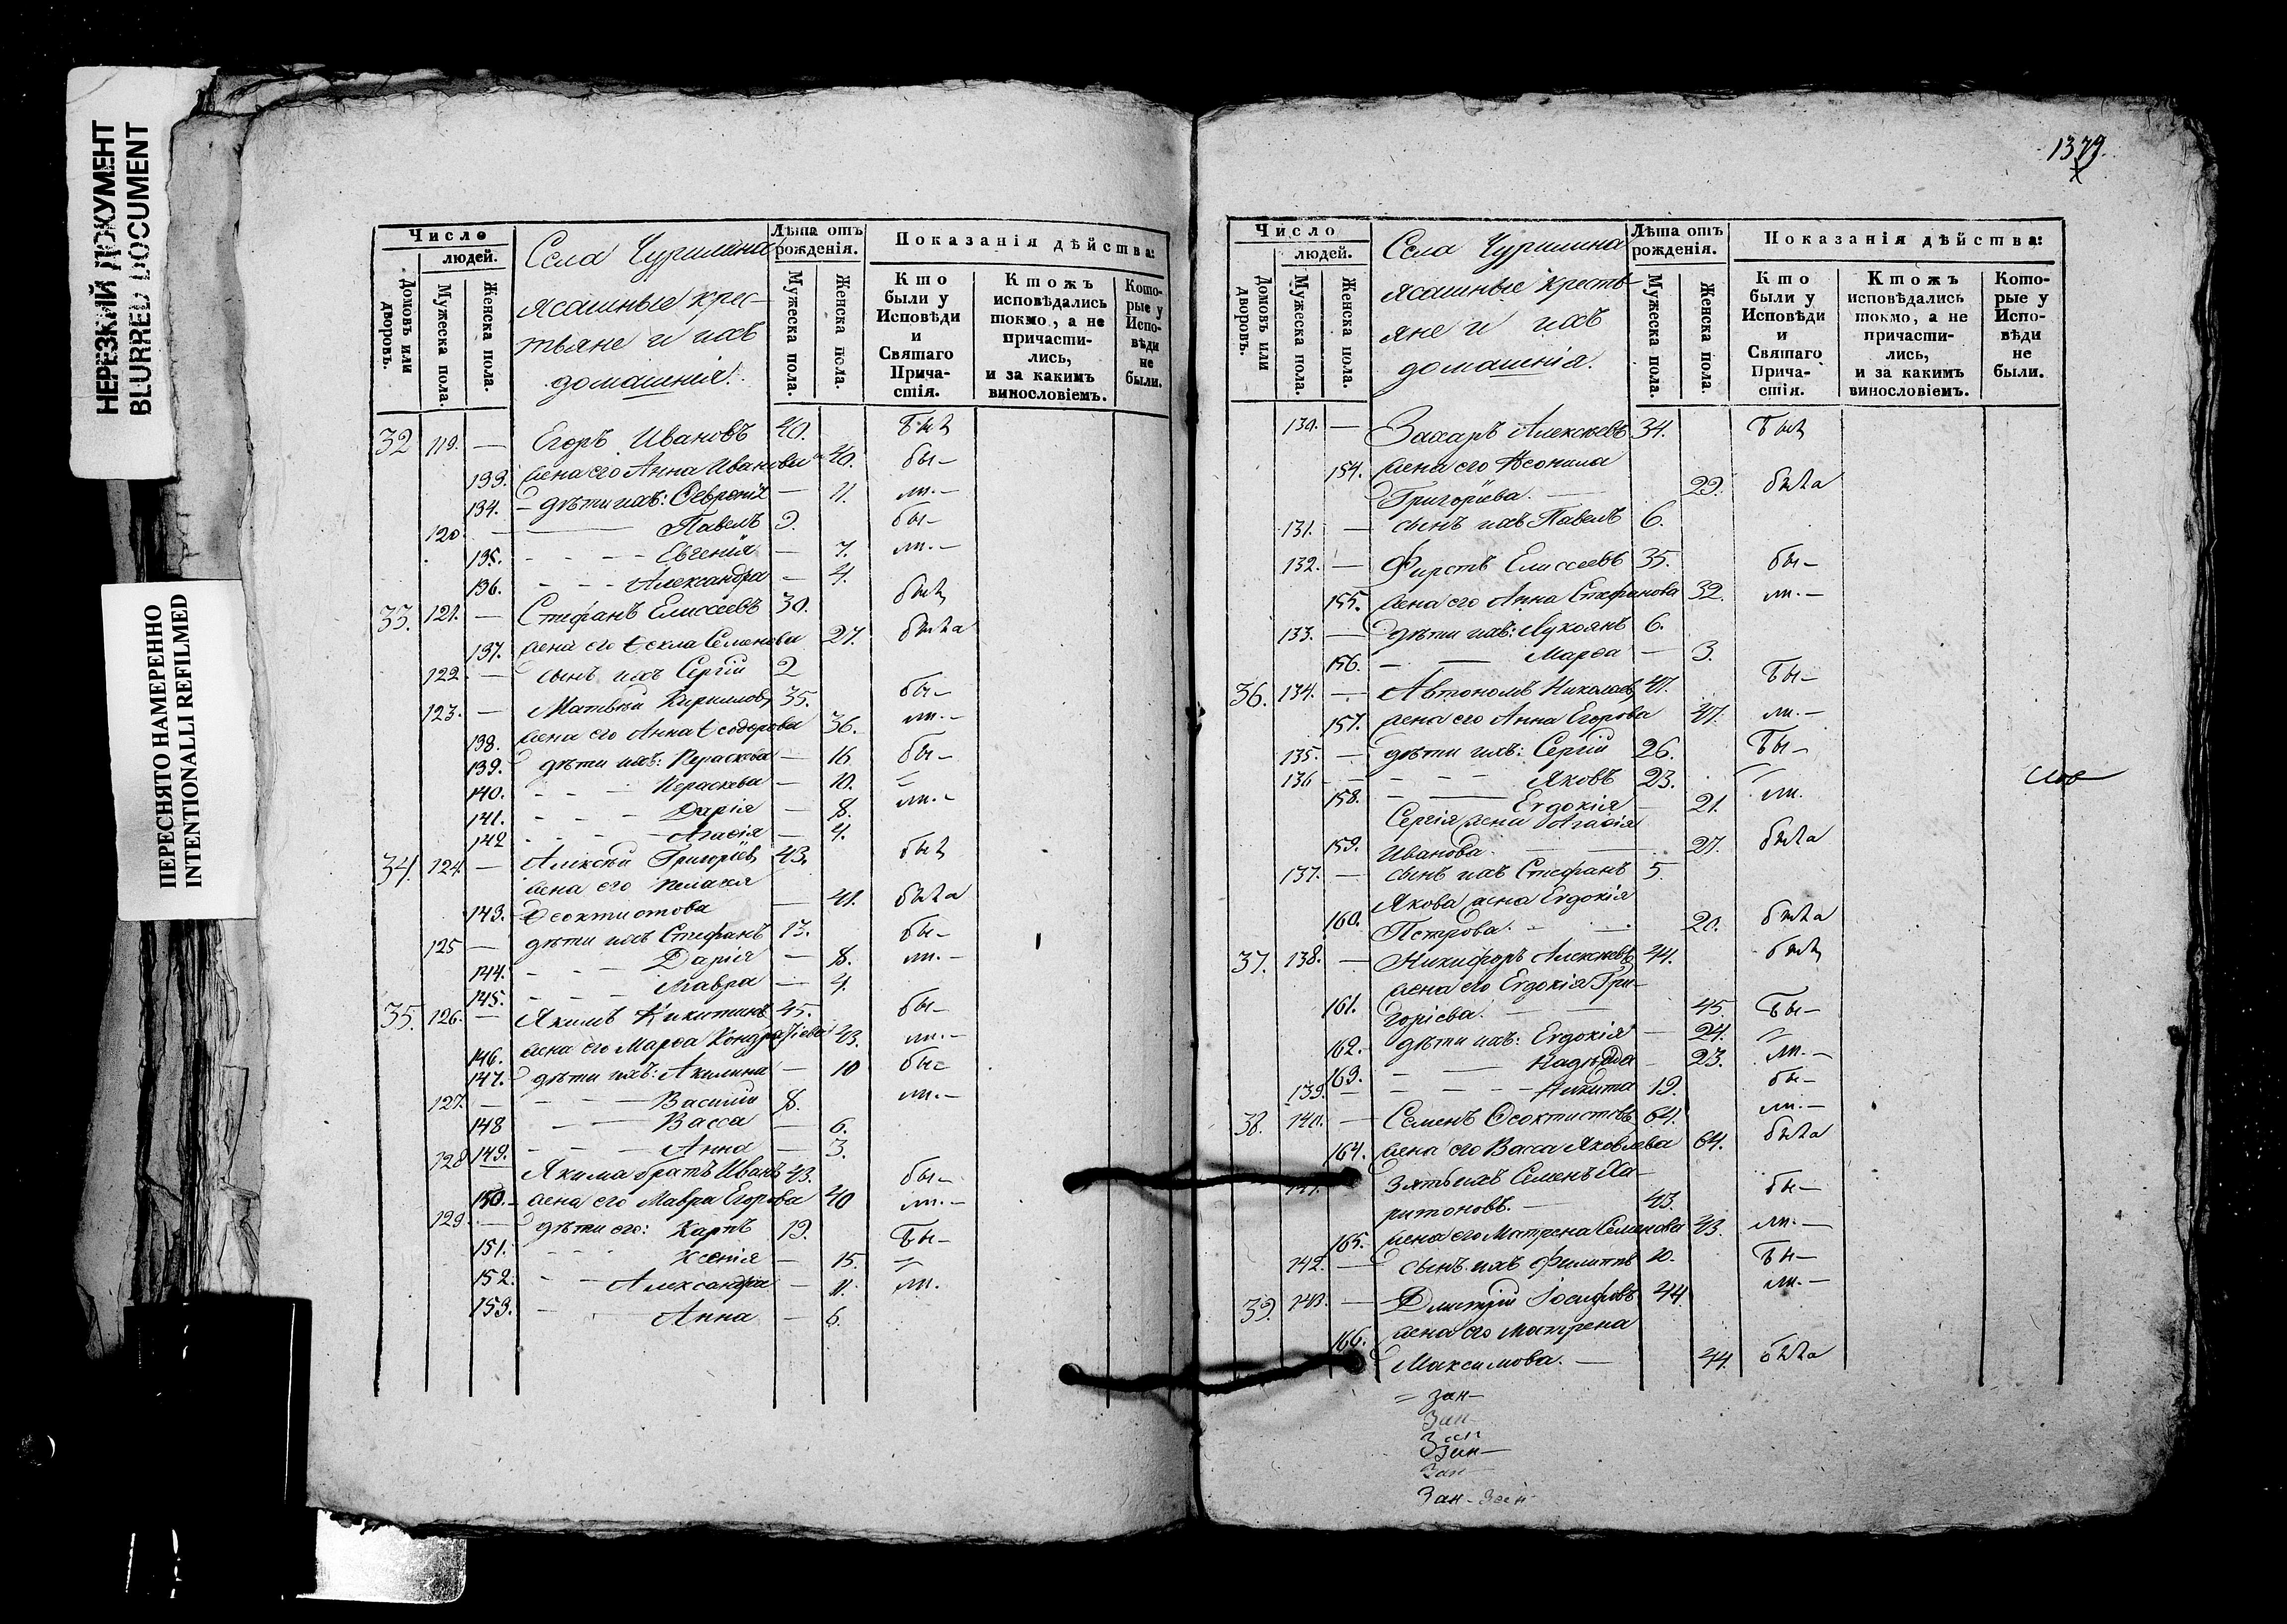 НЕРЕЗКИЙ ДОКУМЕНТ
BLURRED DOCUMENT
ПЕРЕСНЯТО НАМЕРЕННО
INTENTIONALLI REFILMED
Число
людей.
Домовъ или дворовъ.
Мужеска пола.
Женска пола.
Села Чурилина
ясашные крес-
тьяне и ихъ
домашнія.
Лѣта отъ рожденія.
Мужеска пола.
Женска пола.
Показанія дѣйства:
Кто были у Исповѣди и Святаго Причастія.
Ктожъ исповѣдались токмо, а не причастились, и за какимъ винословіемъ.
Которые у Исповѣди не были.
32 119. — Егоръ Ивановъ 40. былъ
133. жена его Анна Иванова 40. бы–
134. – дѣти ихъ: Ѳевронія — 11. ли.–
120. — Павелъ 9. бы–
135. - - - Евгенія — 7. ли.–
136. - - - Александра — 4.
33. 121. — Стефанъ Елисеевъ 30. былъ
137. жена его Ѳекла Семенова 27. была
122. — сынъ ихъ Сергій 2
123. — Матвѣй Кириллов 35. бы–
138. жена его Анна Ѳеодорова 36. ли.–
139. дѣти ихъ: Параскева — 16. бы–
140. - - Параскева — 10.
141. - - - Дарія — 8. ли.–
142 - - - Агаѳія — 4.
34. 124. — Алексѣй Григоріев 43. былъ
жена его Пелагея
143. Ѳеоктистова — 41. была
125 — дѣти ихъ Стефанъ 13. бы–
144. - - - Дарія — 8. ли.–
145. - - - Мавра — 4.
35. 126. — Якимъ Никитинъ 45. бы–
146. жена его Марѳа Кондратіева 43. ли.–
147. дѣти ихъ: Акилина — 10 бы–
127. — - - Василій 8. ли.–
148 - — Васса — 6.
149. - - - Анна — 3.
128 Якима братъ Иванъ 43. бы–
150. – жена его Мавра Егорова 40 ли.–
129. — дѣти его: Карпъ 19. бы–
151. - - Ксенія — 15.
152. - - Александра — 11. ли.
153. - - Анна — 6.
1379.
Число
людей.
Домовъ или дворовъ.
Мужеска пола.
Женска пола.
Села Чурилина
ясашные кресть-
яне и ихъ
домашнія.
Лѣта отъ рожденія.
Мужеска пола.
Женска пола.
Показанія дѣйства:
Кто были у Исповѣди и Святаго Причастія.
Ктожъ исповѣдались токмо, а не причастились, и за какимъ винословіемъ.
Которые у Исповѣди не были.
130. — Захаръ Алексѣевъ 34. былъ
154. жена его Неонила
Григоріева. — 29. была
131. — сынъ ихъ Павелъ 6.
132. — Фирсъ Елисеевъ 35. бы–
155. жена его Анна Стефанова 32. ли.–
133. — дѣти ихъ: Лукоянъ 6.
156. - — Марѳа — 3.
36. 134. — Автономъ Николаев 47. бы–
157. жена его Анна Егорова 47. ли.–
135. — дѣти ихъ: Сергій 26. бы–
136 - - - - Яковъ 23.
158. - — Евдокія — 21. ли.
Сергія жена Агаѳія
159. Иванова. — 27. была
137. — сынъ ихъ Стефанъ 5.
Якова жена Евдокія
160. Петрова. - 20. была
37. 138. — Никифоръ Алексѣевъ 44. былъ
жена его Евдокія Гри-
161. горіева. — 45. бы–
162. дѣти ихъ: Евдокія — 24.
163. - — Надежда — 23. ли.–
139. — - - - Никита 19. бы–
38. 140. — Семенъ Ѳеоктистовъ 64. ли.–
164. жена его Васса Яковлева 64. была
141. зять ихъ Семенъ Ха-
ритоновъ. — 43. бы–
165. жена его Матрена Семенова 43. ли.–
142. — сынъ ихъ Филиппъ 10. бы–
39. 143. — Дмитрій Іосифовъ 44. ли.–
166. жена его Матрена
Максимова. — 44. была
= зан–
Зан–
Зан–
Зан–
Зан – Зан